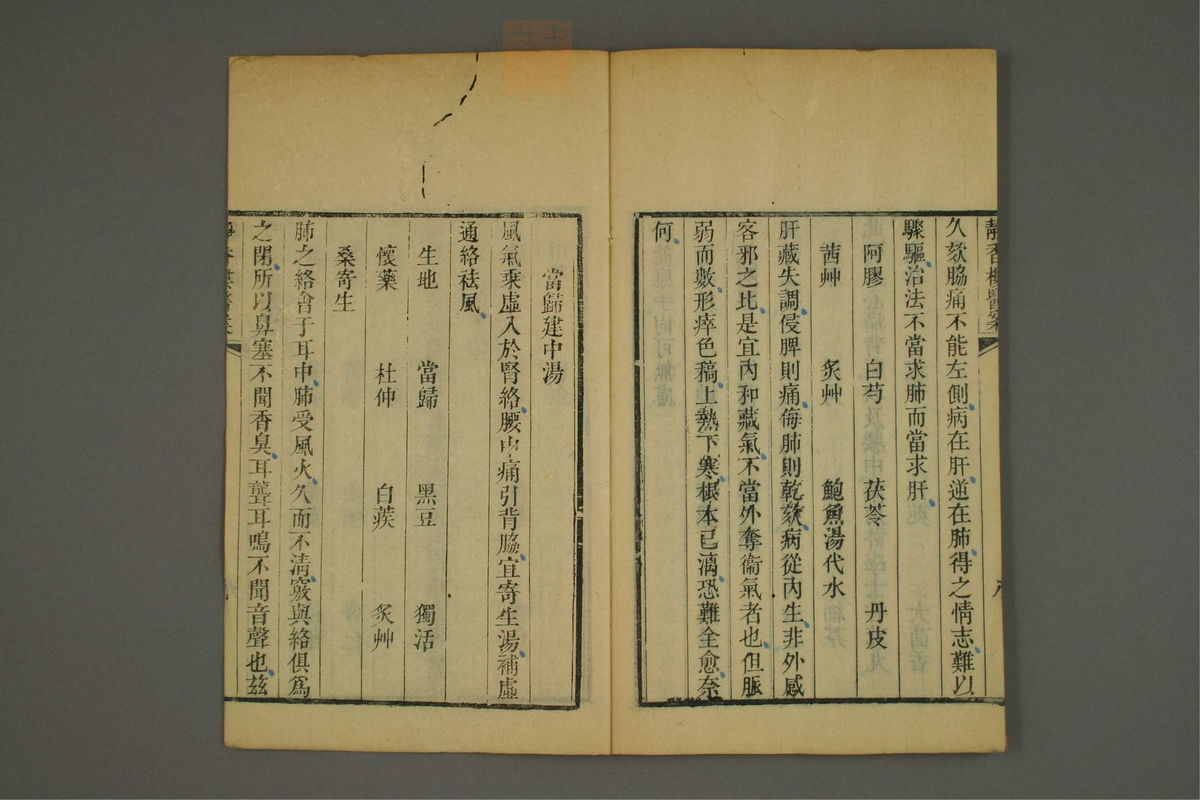 靜香樓醫案
久欬脇痛不能左側病在肝逆在肺得之情志難以
驟驅治法不當求肺而當求肝
阿膠 白芍 茯苓 丹皮
茜艸 炙艸 鮑魚湯代水
肝藏失調侵脾則痛侮肺則乾欬病從內生非外感
客邪之比是宜內和藏氣不當外奪衞氣者也但脈
弱而數形瘁色槁上熱下寒根本已漓恐難全愈奈
何
當歸建中湯
風氣乗虛入於腎絡腰中痛引背脇宜寄生湯補虛
通絡祛風
生地 當歸 黑豆 獨活
懷藥 杜仲 白蒺 炙艸
桑寄生
肺之絡會于耳中肺受風火久而不清竅與絡俱爲
之閉所以鼻塞不聞香臭耳聾耳鳴不聞音聲也兹